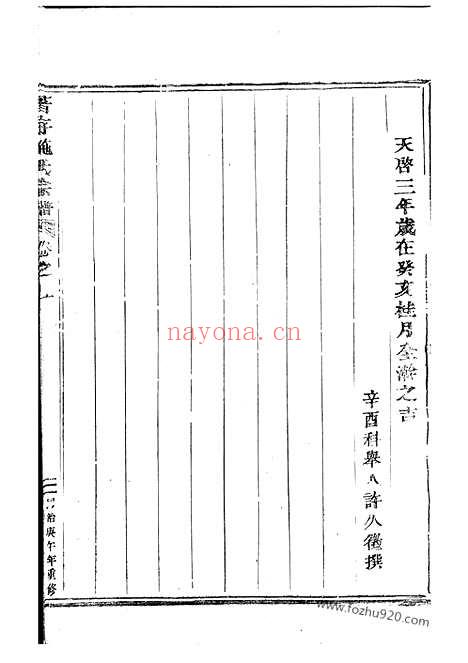 天啓三年歲在癸亥桂月全澣之吉
辛酉科舉人許久徵撰
施氏宗譜卷之一
同治庚午年重修
nayona.cn
www.fozhu920.com